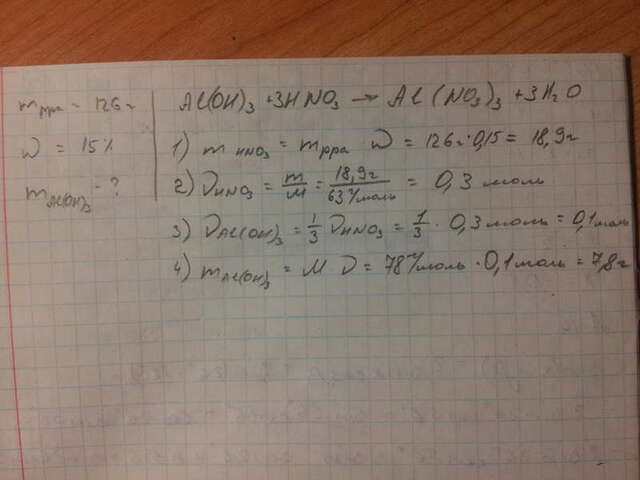 m р-ра = 126 г
W = 15%
m Al(OH)3 - ?
Al(OH)3 + 3HNO3 → Al(NO3)3 + 3H2O
1) m HNO3 = m р-ра W = 126г·0,15 = 18,9г
2) ν HNO3 = m/M = 18,9г/63 г/моль = 0,3 моль
3) ν Al(OH)3 = 1/3 ν HNO3 = 1/3 · 0,3 моль = 0,1 моль
4) m Al(OH)3 = M ν = 78 г/моль · 0,1 моль = 7,8 г